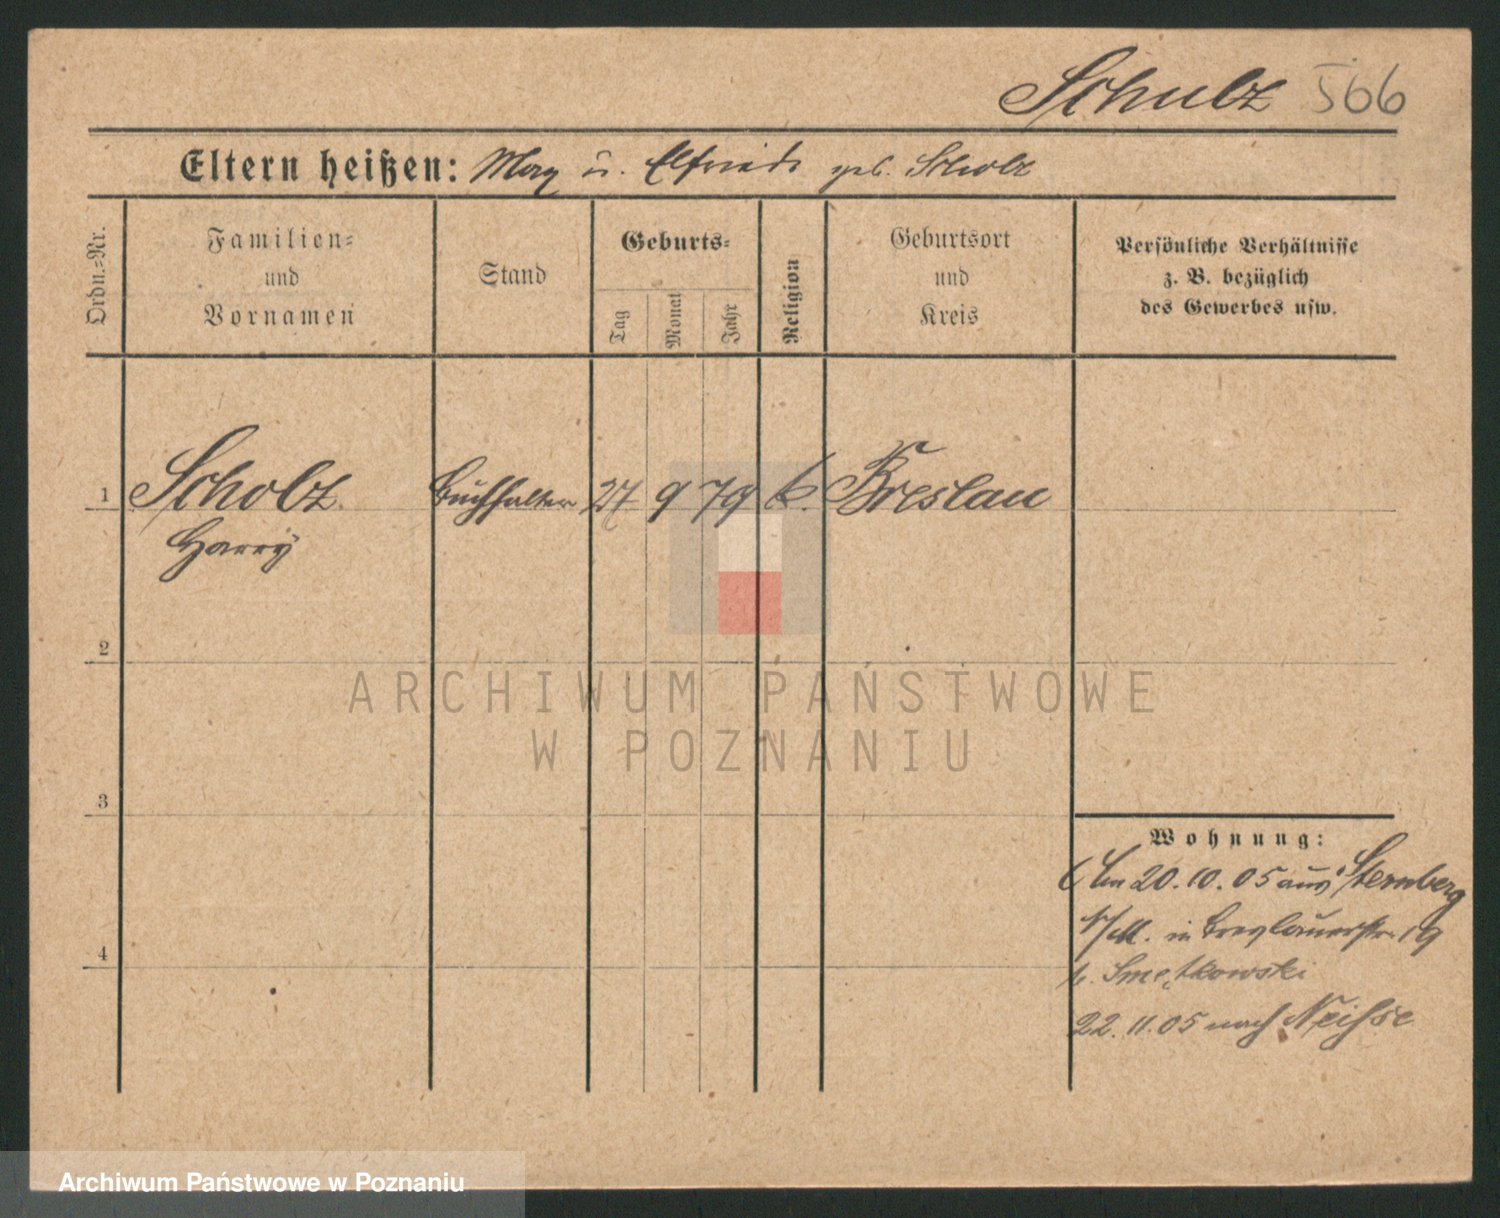 Schulz 566
Eltern heißen: Max u. Elfriede geb. Scholz
Ordn.-Nr.
Familien-
und
Vornamen
Stand
Geburts-
Tag
Monat
Jahr
Religion
Geburtsort
und
Kreis
Persönliche Verhältnisse
z. B. bezüglich
des Gewerbes usw.
1 Scholz Buchhalter 27 9 79 k. Breslau
Harry
2
3
4
Wohnung:
Am 20.10.05 aus Sternberg
N/M. in Breslauerstr. 19
b. Smętkowski
22.11.05 nach Neisse
ARCHIWUM PAŃSTWOWE
W POZNANIU
Archiwum Państwowe w Poznaniu